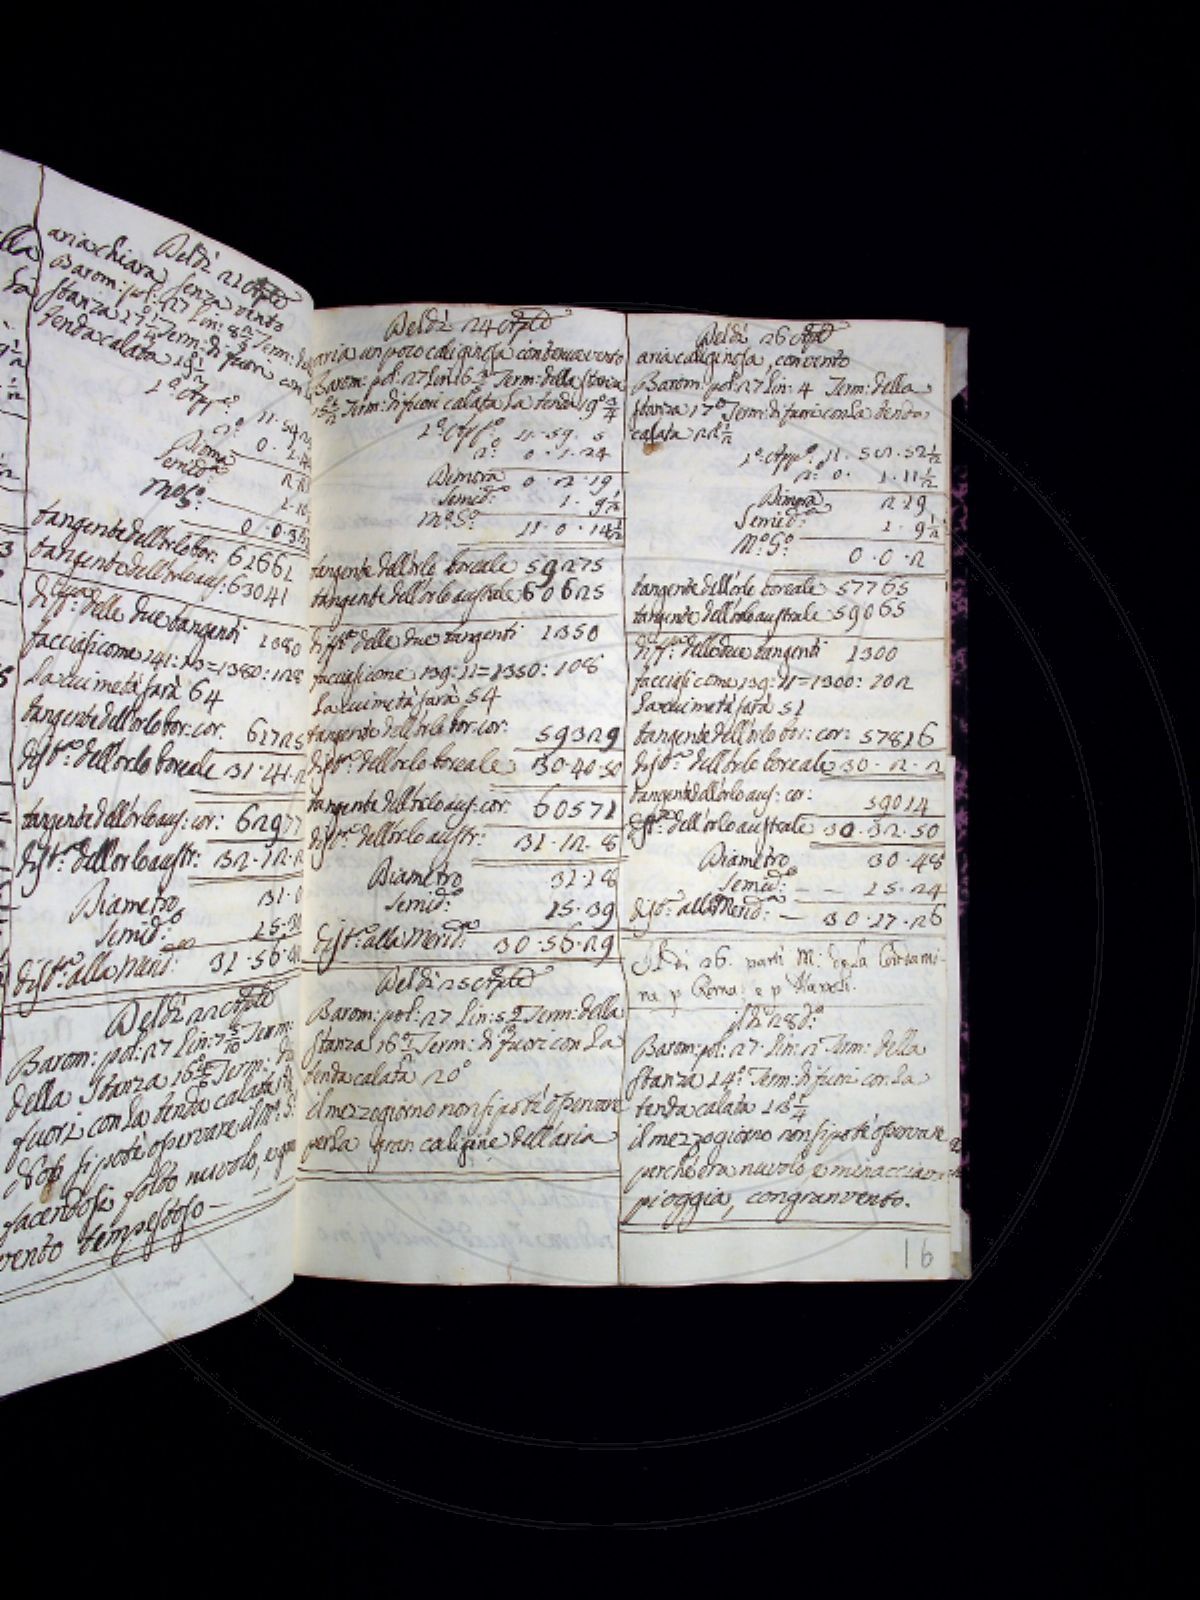 Del dì 21 Aprile
aria chiara senza vento
Barom: pol: 27 lin: 8 Term: della
stanza 17 Term: di fuori con la
tenda calata 18
1º App:º 11·59
2º 0·
Dimora
Semid:ª
Mº Gº 0·0·3
tangente dell'orlo bor: 61661
tangente dell'orlo aus: 63041
diff:ª delle due tangenti 1380
facciasi come 141:13=1380:128
la cui metà sarà 64
tangente dell'orlo bor: cor: 61725
dist:ª dell'orlo boreale 31·41·
tangente dell'orlo aus: cor: 62977
dist:ª dell'orlo austr: 32·12·
Diametro 31·0
Semid:º 15·30
dist:ª alla Merid: 31·56·
Del dì 22 Aprile
Barom: pol: 27 lin: 7 5/10 Term:
della stanza 16 Term: di
fuori con la tenda calata
si potè osservare il Mº Gº
facendosi folto nuvolo, e gran
vento tempestoso
Del dì 24 Aprile
aria un poco caliginosa con tenue vento
Barom: pol: 27 lin 6 1/2 Term: della stanza
15 1/2 Term: di fuori calata la tenda 19º 3/4
1º App:º 11·59·5
2º 0·1·24
Dimora 0·2·19
Semid:ª 1·9 1/2
Mº Gº 11·0·14 1/2
tangente dell'orlo boreale 59275
tangente dell'orlo australe 60625
diff:ª delle due tangenti 1350
facciasi come 139:11=1350:108
la cui metà sarà 54
tangente dell'orlo bor: cor: 59329
dist:ª dell'orlo boreale 30·40·50
tangente dell'orlo aus: cor: 60571
dist:ª dell'orlo austr: 31·12·8
Diametro 31·18
Semid:º 15·39
dist:ª alla Merid:ª 30·56·29
Del dì 25 Aprile
Barom: pol: 27 lin: 5 1/2 Term: della
stanza 16 1/2 Term: di fuori con la
tenda calata 20º
il mezzogiorno non si potè osservare
per la gran caligine dell'aria
Del dì 26 Aprile
aria caliginosa, con vento
Barom: pol: 27 lin: 4 Term: della
stanza 17º Term: di fuori con la tenda
calata 21 1/2
1º App:º 11·58·52 1/2
2º 0·1·11 1/2
Dimora 2·19
Semid:ª 1·9 1/2
Mº Gº 0·0·2
tangente dell'orlo boreale 57765
tangente dell'orlo australe 59065
diff:ª delle due tangenti 1300
facciasi come 139:11=1300:102
la cui metà sarà 51
tangente dell'orlo bor: cor: 57816
dist:ª dell'orlo boreale 30·2·2
tangente dell'orlo aus: cor: 59014
dist:ª dell'orlo australe 30·32·50
Diametro 30·48
Semid:º — — 15·24
dist:ª alla Merid:ª — 30·17·26
Il dì 26 partì M: de la Condami-
ne p Roma: e p Napoli.
il dì 28 d:º
Barom: pol: 27· lin: 2 Term: della
stanza 14º Term: di fuori con la
tenda calata 18 1/4
il mezzogiorno non si potè osservare
perchè era nuvolo, e minacciava
pioggia, con gran vento.
16